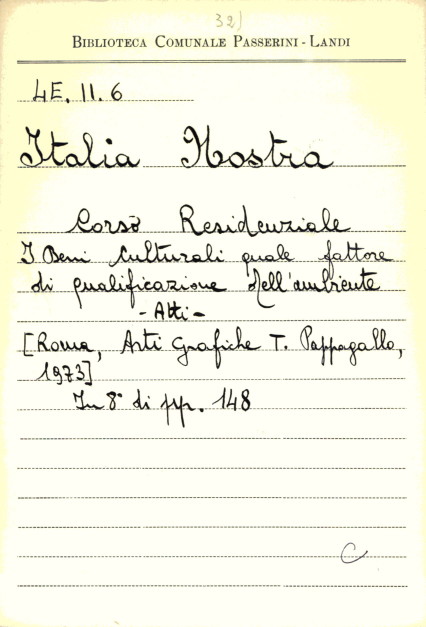 32)
BIBLIOTECA COMUNALE PASSERINI - LANDI
4E. II. 6
Italia Nostra
Corso Residenziale
I Beni Culturali quale fattore
di qualificazione dell'ambiente
- Atti -
[Roma, Arti Grafiche T. Pappagallo,
1973]
In 8° di pp. 148
C